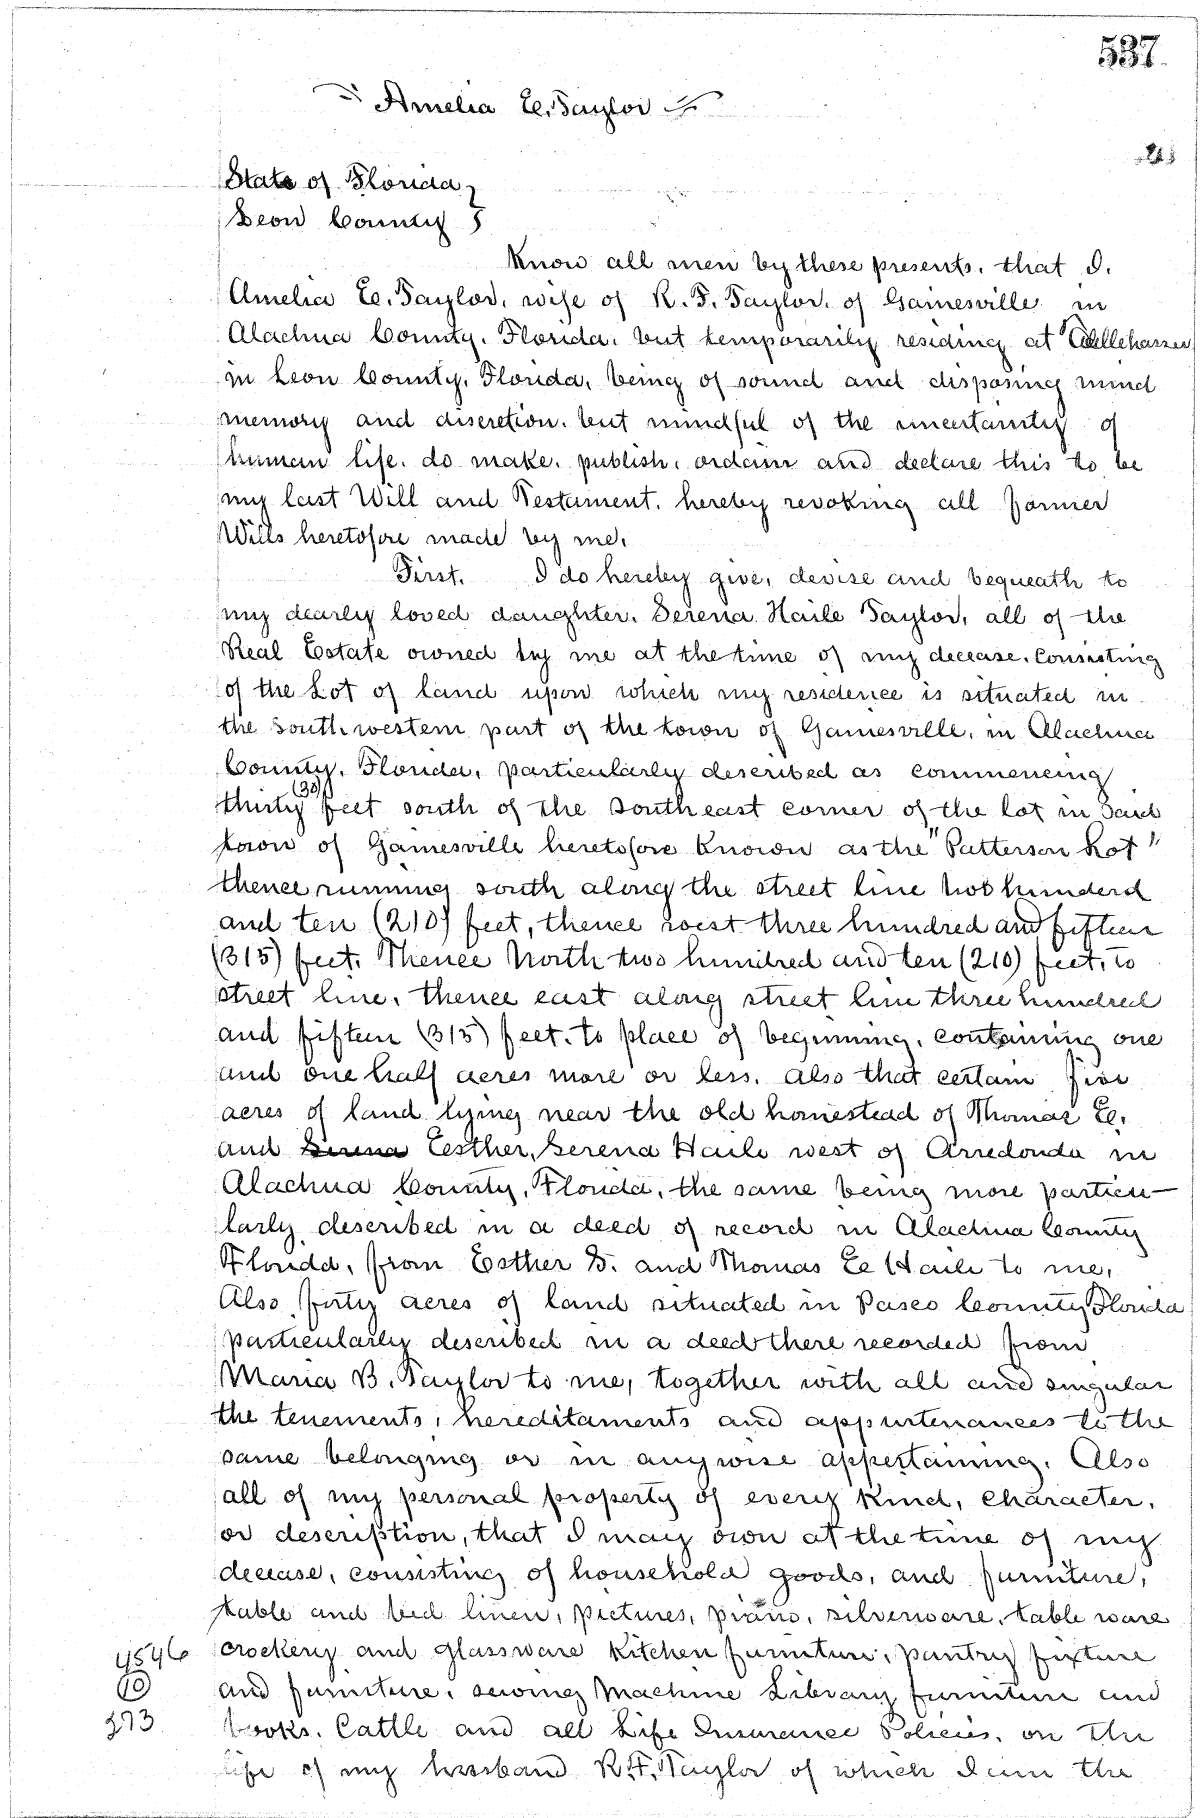 537
Amelia E. Taylor
State of Florida
Leon County
Know all men by these presents, that I,
Amelia E. Taylor, wife of R. F. Taylor, of Gainesville in
Alachua County, Florida, but temporarily residing at Tallehassee
in Leon County, Florida, being of sound and disposing mind
memory and discretion, but mindful of the uncertainty of
human life, do make, publish, ordain and declare this to be
my last Will and Testament, hereby revoking all former
Wills heretofore made by me.
First. I do hereby give, devise and bequeath to
my dearly loved daughter, Serena Haile Taylor, all of the
Real Estate owned by me at the time of my decease, Consisting
of the Lot of land upon which my residence is situated in
the south western part of the town of Gainesville, in Alachua
County, Florida, particularly described as commencing
thirty (30) feet south of the South east corner of the lot in said
town of Gainesville heretofore known as the "Patterson Lot"
thence running south along the street line two hunderd
and ten (210) feet, thence west three hundred and fifteen
(315) feet. Thence North two hundred and ten (210) feet, to
street line, thence east along street line three hundred
and fifteen (315) feet, to place of beginning, containing one
and one half acres more or less. also that certain five
acres of land lying near the old homestead of Thomas E.
and Serena Eesther, Serena Haile west of Arredonda in
Alachua County, Florida, the same being more particu-
larly described in a deed of record in Alachua County
Florida, from Esther S. and Thomas E Haile to me,
Also forty acres of land situated in Pasco County Florida
particularly described in a deed there recorded from
Maria B. Taylor to me, together with all and singular
the tenements, hereditaments and appurtenances to the
same belonging or in anywise appertaining. Also
all of my personal property of every kind, character,
or description, that I may own at the time of my
decease, consisting of household goods, and furniture,
table and bed linen, pictures, piano, silverware, table ware
crockery and glassware Kitchen furniture, pantry fixture
and furniture, sewing Machine Library furniture and
books. Cattle and all Life Insurance Policies, on the
life of my husband R. F. Taylor of which I am the
4546
10
373